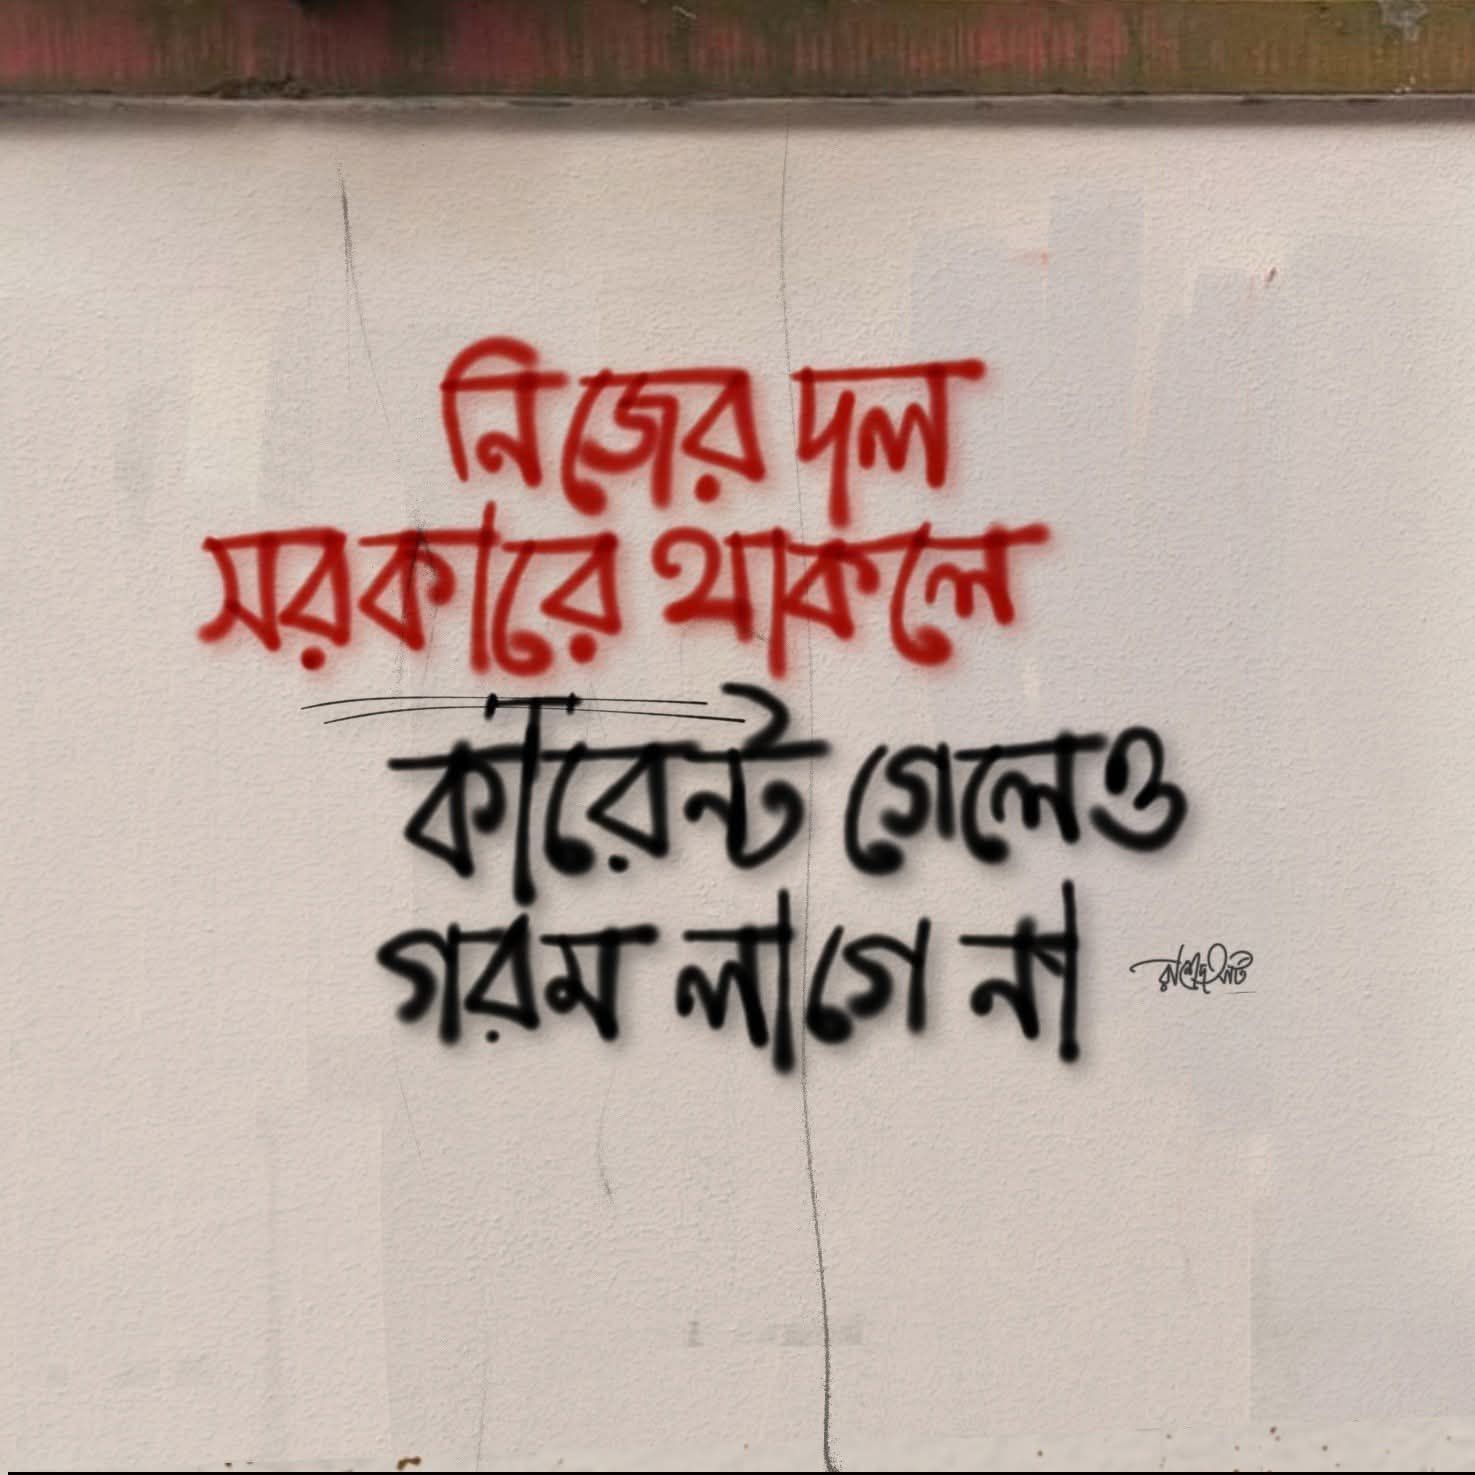 নিজের দল
সরকারে থাকলে
কারেন্ট গেলেও
গরম লাগে না